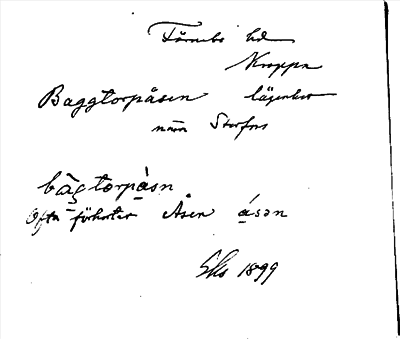 Färnebo hd
Kroppa
Baggtorpåsen lägenhet
nära Storfors
bàgtorpåsn
Ofta förkortat Åsen åsən
1899